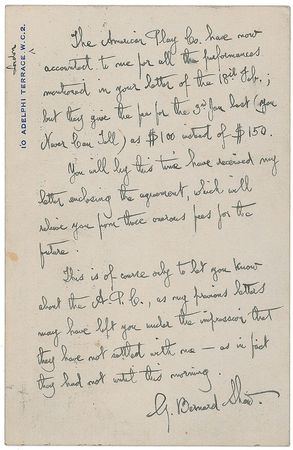 London
10 ADELPHI TERRACE W.C.2.
The American Play Co. have now
accounted to me for all the performances
mentioned in your letter of the 18th Feb.;
but they give the fee for the 3rd Jan last (You
Never Can Tell) as $100 instead of $150.
You will by this time have received my
letter enclosing the agreement, which will
relieve you from those onerous fees for the
future.
This is of course only to let you know
about the A.P.C., as my previous letters
may have left you under the impression that
they have not settled with me — as in fact
they had not until this morning.
G. Bernard Shaw.